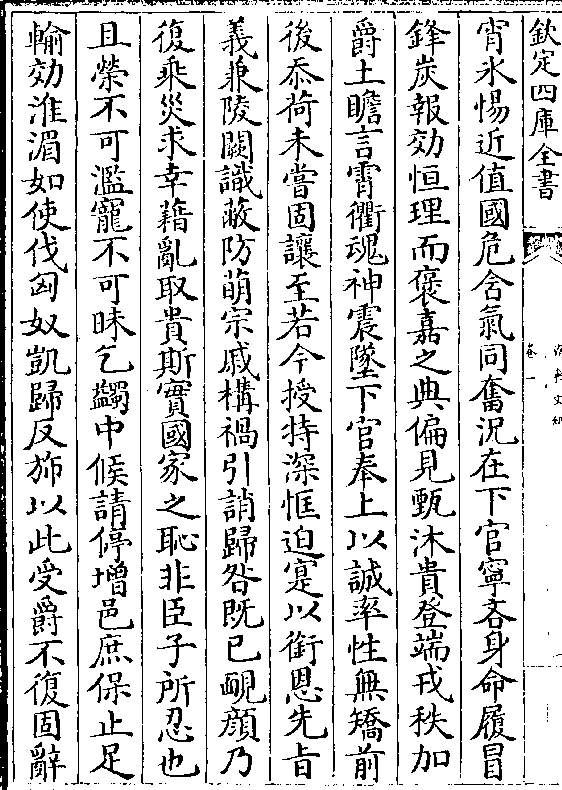 欽定四庫全書
卷一
宵氷惕近值國危含氣同奮況在下官寧吝身命履冒
鋒炭報効恒理而褒嘉之典偏見甄沐貴登端戎秩加
爵土瞻言霄衢魂神震墜下官奉上以誠率性無矯前
後忝荷未嘗固讓至若今授特深恇迫寔以銜恩先旨
義兼陵闕識蔽防萌宗戚構禍引誚歸咎既已靦顔乃
復乘災求幸藉亂取貴斯實國家之恥非臣子所忍也
且榮不可濫寵不可昧乞蠲中候請停增邑庶保止足
輸効淮湄如使伐匈奴凱歸反斾以此受爵不復固辭